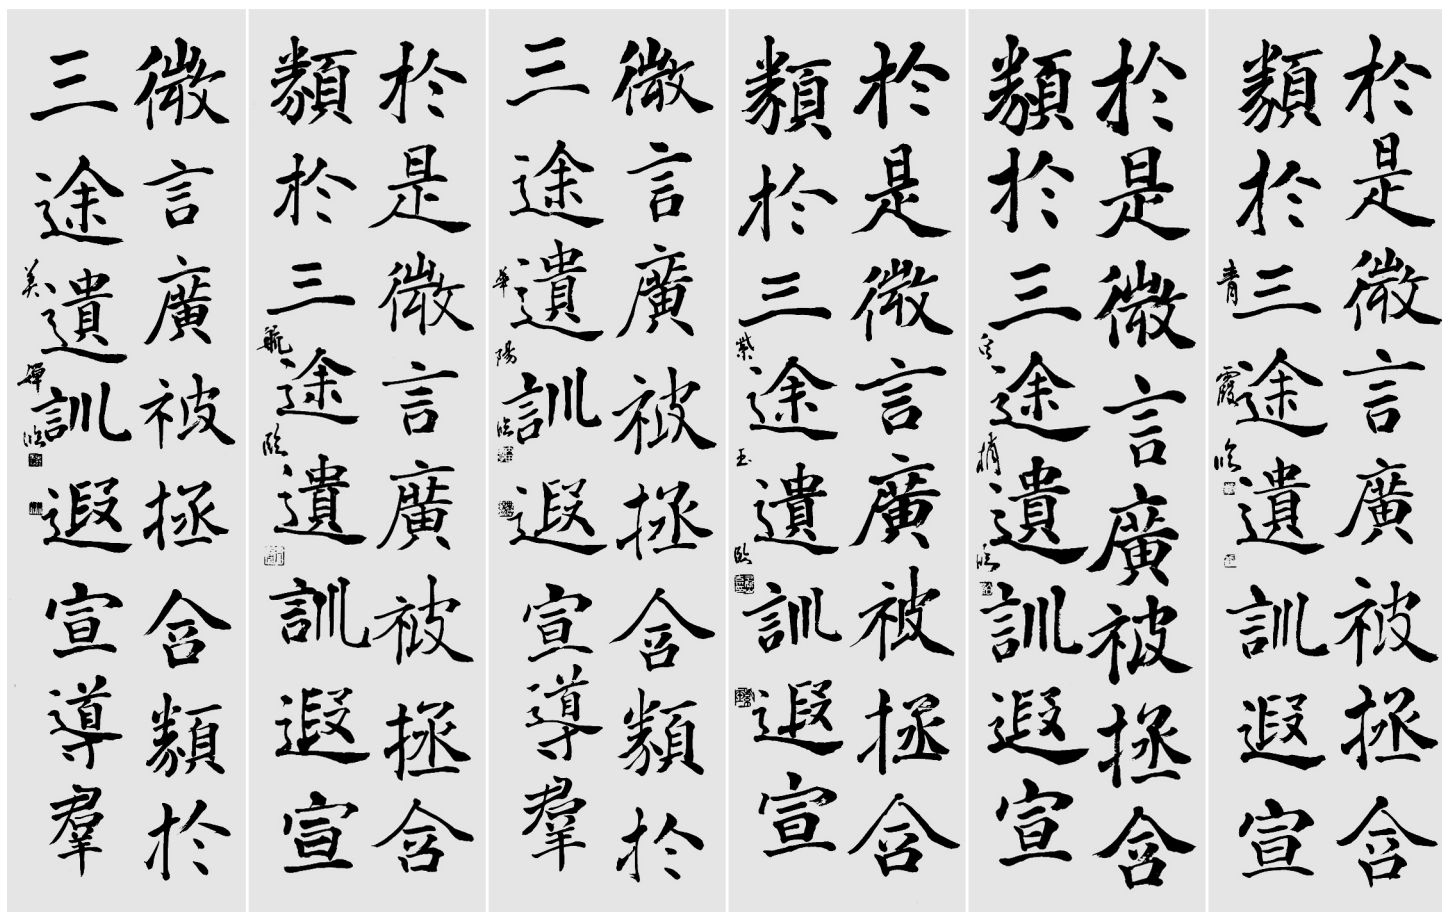 於是微言廣被拯含
類於三途遺訓遐宣
青霞臨
於是微言廣被拯含
類於三途遺訓遐宣
臨
於是微言廣被拯含
類於三途遺訓遐宣
紫玉臨
微言廣被拯含類於
三途遺訓遐宣導羣
華陽臨
於是微言廣被拯含
類於三途遺訓遐宣
毓臨
微言廣被拯含類於
三途遺訓遐宣導羣
美嬋臨